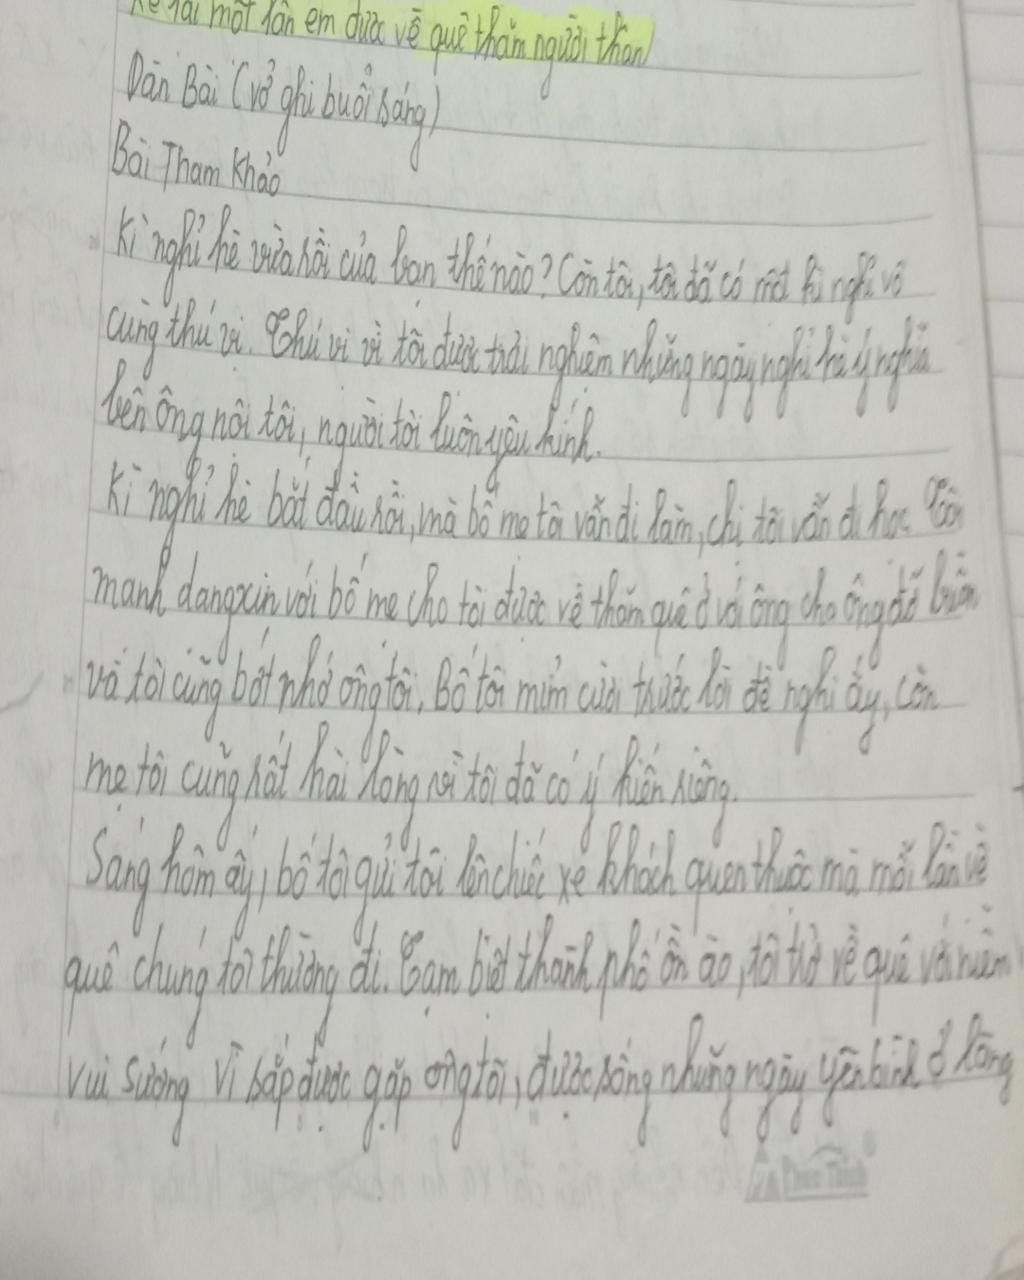 Kể lại một lần em được về quê thăm người thân
Dàn Bài (vở ghi buổi sáng)
Bài Tham Khảo
Kì nghỉ hè vừa rồi của bạn thế nào? Còn tôi, tôi đã có một kì nghỉ vô
cùng thú vị. Thú vị vì tôi được trải nghiệm những ngày nghỉ hè ý nghĩa
bên ông nội tôi, người tôi luôn yêu kính.
Kì nghỉ hè bắt đầu rồi, mà bố mẹ tôi vẫn đi làm, chị tôi vẫn đi học. Tôi
mạnh dạng xin với bố mẹ cho tôi được về thăm quê ở với ông cho ông đỡ buồn
và tôi cũng bớt nhớ ông tôi. Bố tôi mỉm cười trước lời đề nghị ấy, còn
mẹ tôi cũng rất hài lòng vì tôi đã có ý kiến riêng.
Sáng hôm ấy, bố tôi gửi tôi lên chiếc xe khách quen thuộc mà mỗi lần về
quê chúng tôi thường đi. Tạm biệt thành phố ồn ào, tôi trở về quê với niềm
vui sướng vì sắp được gặp ông tôi, được sống những ngày yên bình ở làng